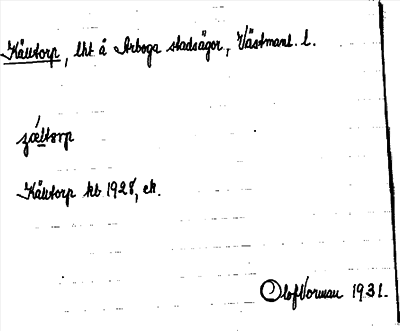 Källtorp, lht å Arboga stadsägor, Västmanl. l.
zǽltorp
Källtorp kb 1928, ek.
Olof Vorman 1931.